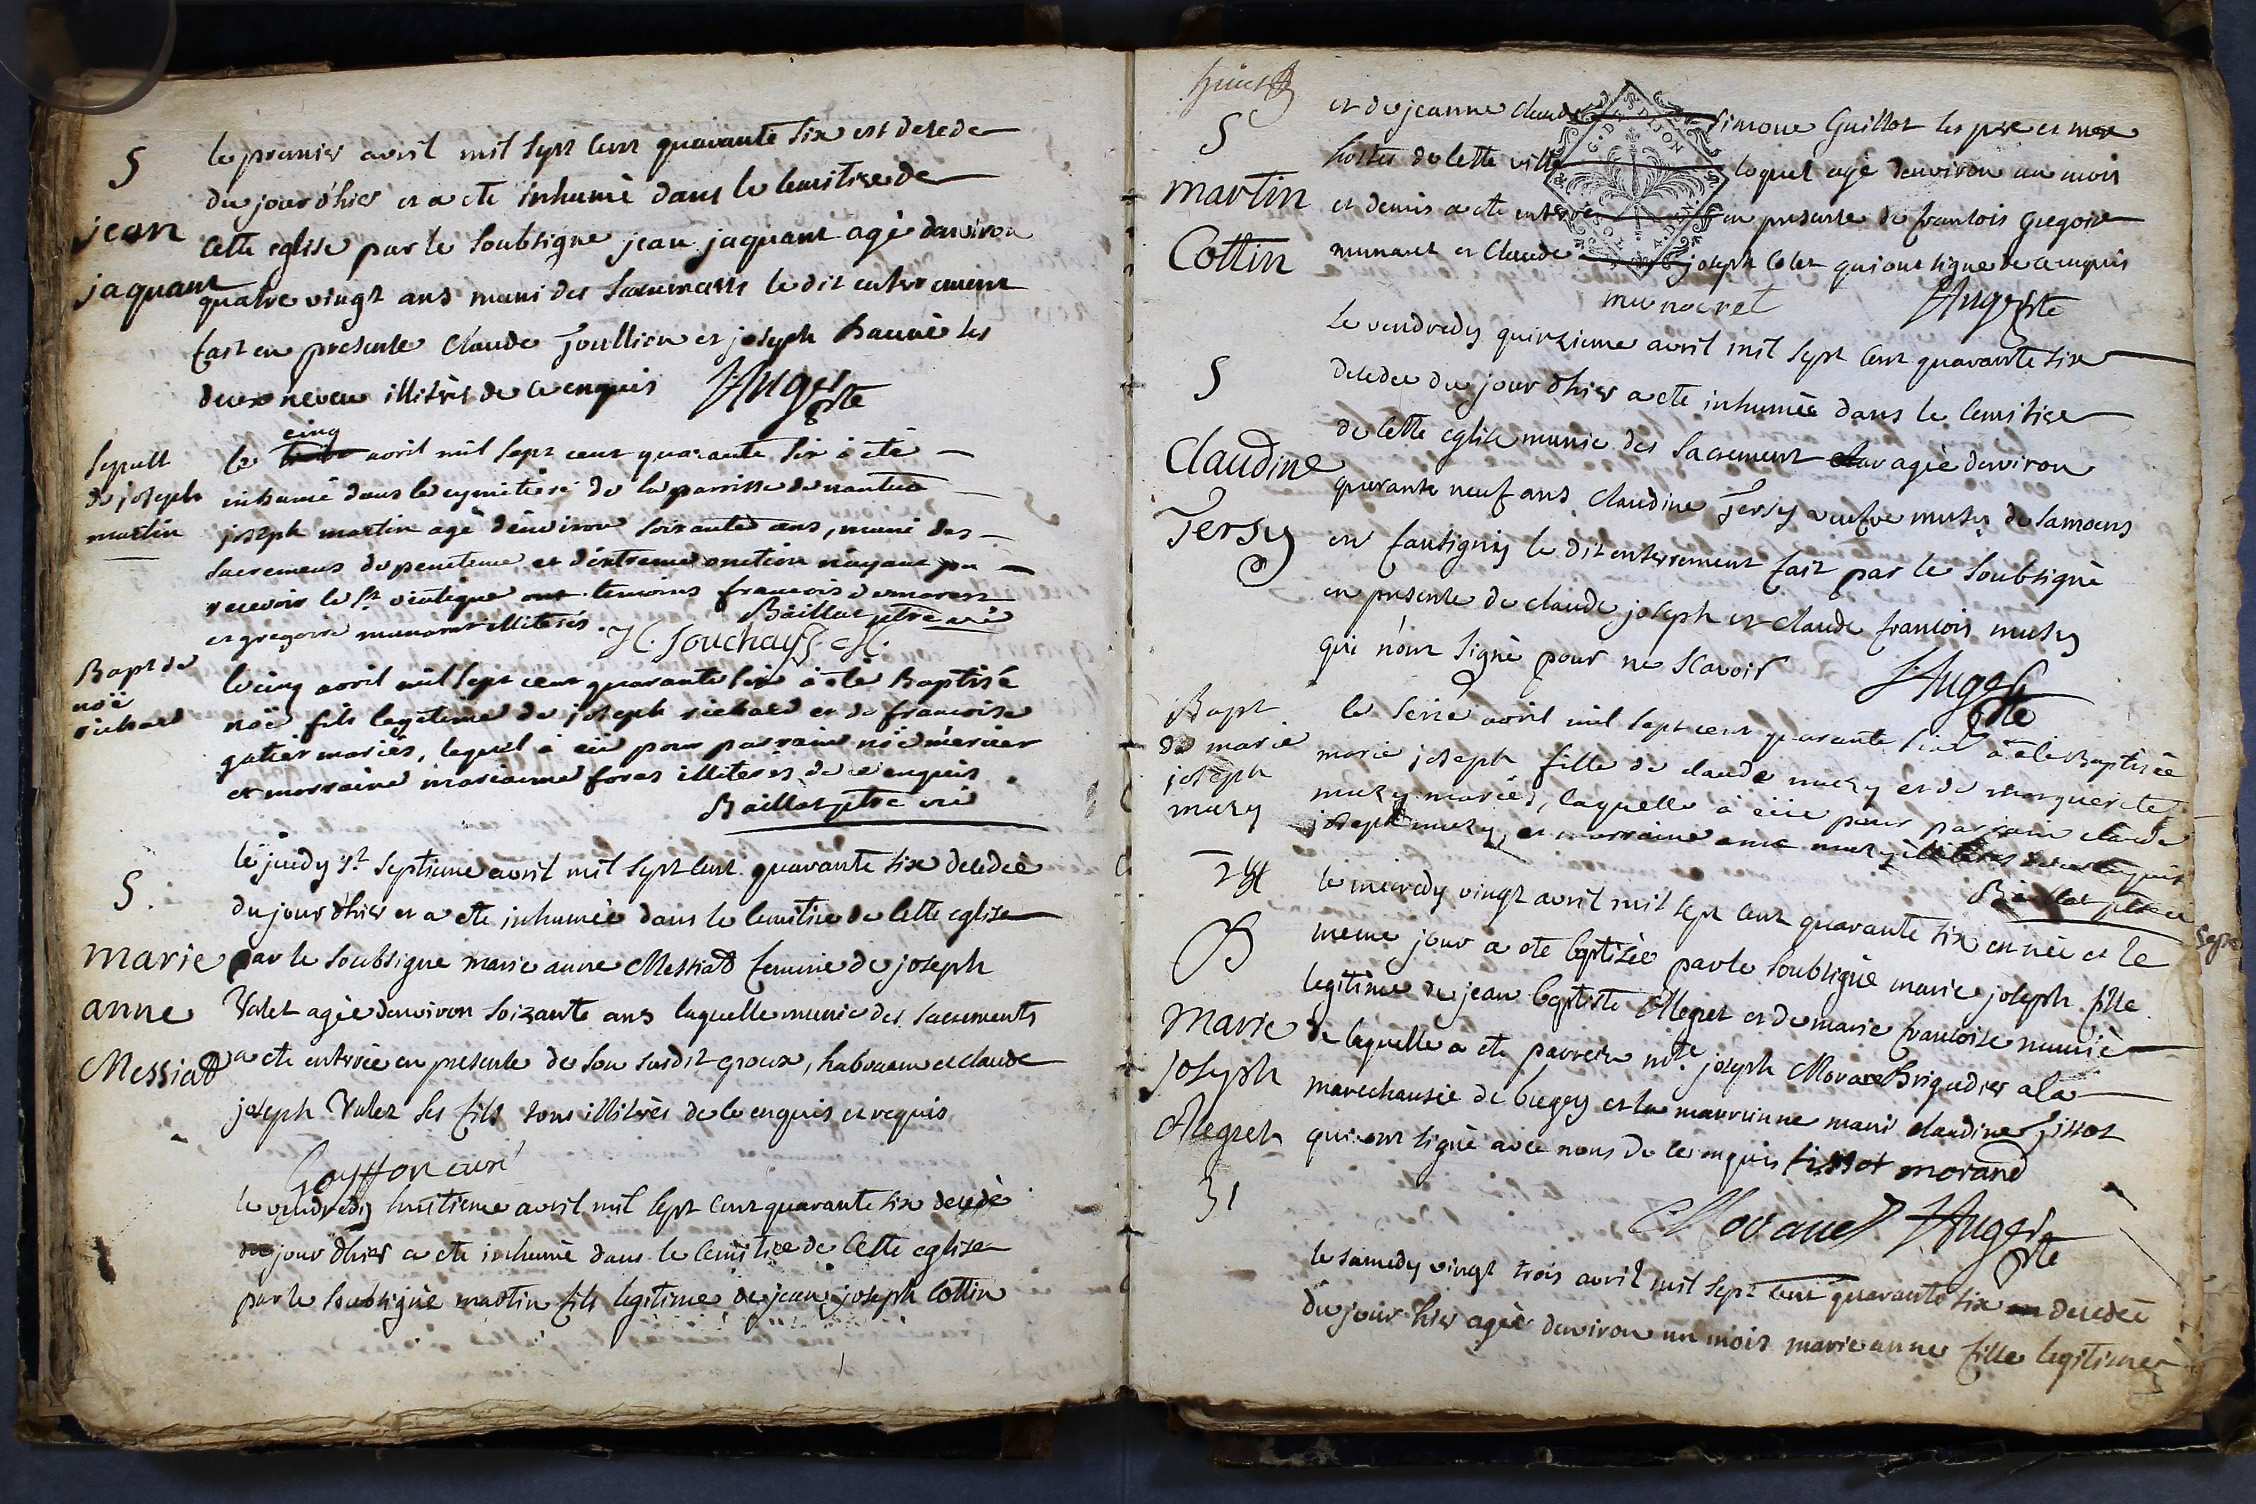 S
jean
jaquant
le premier avril mil sept cent quarante six est decede
du jour d'hier et a ete inhumè dans le cemitiere de
cette eglise par le soubsigne jean jaquant agè denviron
quatre vingt ans muni des sacrements le dit enterrement
fait en presente Claude Joullien et joseph les
deux neveu illitrés de ce enquis hugo ptre
sepult
de joseph
martin
cinq
le avril mil sept cent quarante six à eté
inhumé dans le cymitiere de la parroisse de nantua
joseph martin agé d'environ soixante ans, muni des
sacremens de penitence et d'extreme onction n'ayant pu
recevoir le st viatique temoins francois demorest
et gregoire munaret illiterés. Baillat ptre vic
H. Souchays
Bapt de
noë
richard
le cinq avril mil sept cent quarante six à eté Baptisé
noë fils legitime de joseph richard et de francoise
gatier mariés, lequel à eü pour parrain noë mercier
et marraine marianne foras illiterés de ce enquis
Baillat ptre vic
S.
marie
anne
Messiat
le jeudy septieme avril mil sept cent quarante six decedeè
du jour d'hier et a ete inhumeè dans le cemitiere de cette eglise
par le soubsigne marie anne Messiat femme de joseph
Valet ageè denviron soixante ans laquelle munie des sacrements
a ete enterrée en presente de son susdit epoux, et claude
joseph Valet ses fils tous illitrés de ce enquis et requis
curé
le vendredy huitieme avril mil sept cent quarante six decedè
du jour d'hier a ete inhumè dans le cemitiere de cette eglise
par le soubsigné martin fils legitime de jean joseph Cottin
S
martin
Cottin
et de jeanne Claude Simone Guillot ses pere et mere
hostes de cette ville lequel agè denviron un mois
et demis a ete enterré en presente de francois gregoire
munaret et Claude joseph Colet qui ont signe de ce enquis
munaret hugo ptre
G. DE DIJON
S
Claudine
Jersy
le vendredy quinzieme avril mil sept cent quarante six
decedee du jour d'hier a ete inhumeè dans le cemitiere
de cette eglise munie des sacrement ageè denviron
quarante neuf ans Claudine Jersy veufve musy de samoens
en fausigniy le dit enterrement fait par le soubsignè
en presente de claude joseph et claude francois musy
qui n'ont signè pour ne scavoir hugo ptre
Bapt
de marie
joseph
muzy
le seize avril mil sept cent quarante six à eté Baptisée
marie joseph fille de claude muzy et de marguerite
muzy mariés, laquelle à eüe pour parrain claude
joseph muzy, et marraine anne muzy illiteres de ce enquis
Baillat ptre vic
B
Marie
joseph
Alegret
le mecredy vingt avril mil sept cent quarante six est neè et le
meme jour a ete baptizée par le soubsignè marie joseph fille
legitime de jean baptiste Alegret et de marie francoise
de laquelle a ete parrein mtre joseph Morand Brigadier a la
marechausée de bugey et la marrienne marie claudine tissot
qui ont signè avec nous de ce enquis tissot morand
Morand hugo ptre
31
le samedy vingt trois avril mil sept cent quarante six decedeè
du jour hier ageè denviron un mois marie anne fille legitime